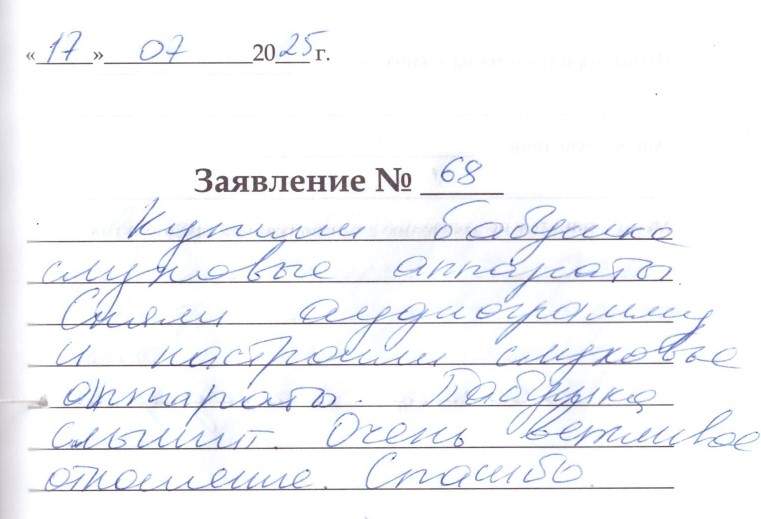 «17» 07 2025 г.
Заявление № 68
Купили бабушке
слуховые аппараты
Сняли аудиограмму
и настроили слуховые
аппараты. Бабушка
слышит. Очень вежливое
отношение. Спасибо.